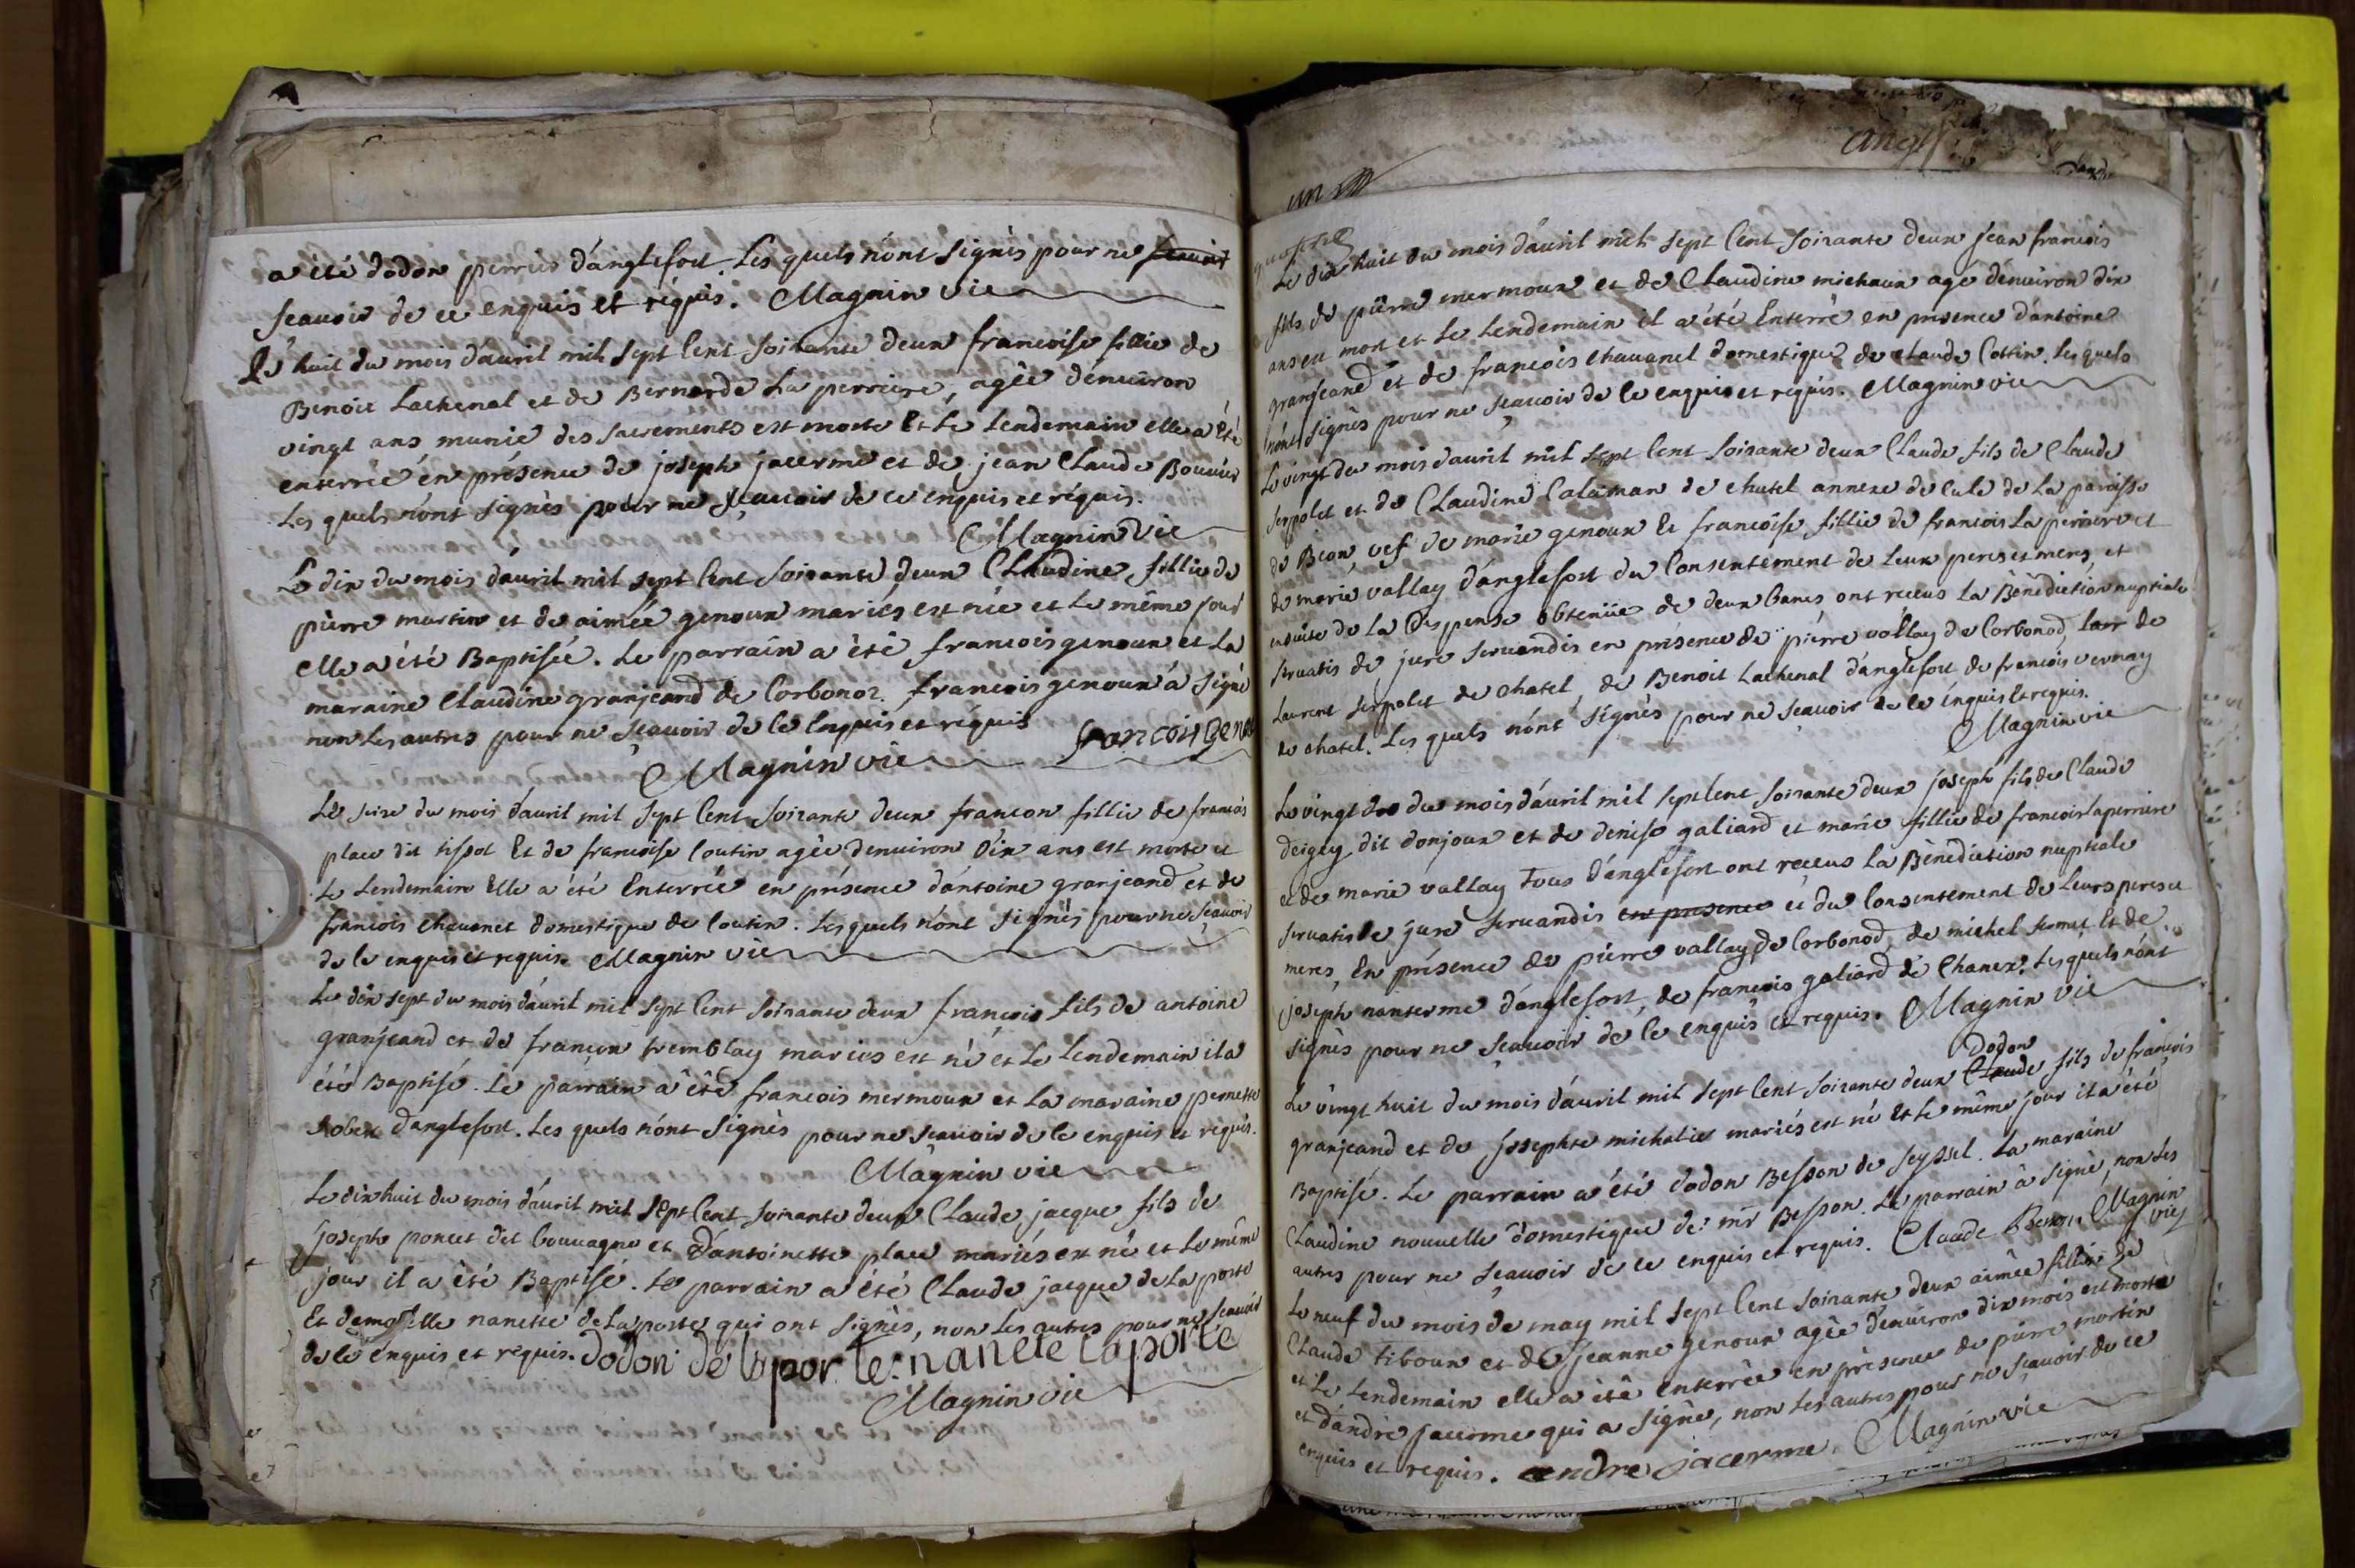 a été dodon perrier d'anglefort. Les quels n'ont signès pour ne scauoir
scauoir de ce enquis et réquis. Magnin vic
Le huit du mois d'auril mil sept Cent soixante deux francoise fillie de
Benoit Lachenal et de Bernarde La perriere, agêe d'enuiron
vingt ans, munie des sacrements est morte Et le Lendemain elle a été
enterrée en présence de joseph jacerme et de jean Claude Bouuier
Les quels n'ont signès pour ne scauoir de ce enquis et réquis.
Magnin vic
Le dix du mois d'auril mil sept Cent soixante deux Claudine fillie de
pierre martin et de aimée genoux mariés est née et le même jour
elle a été Baptisée. Le parrain a été francois genoux et La
maraine Claudine granjeand de Corbonoz. francois genoux a signé
non Les autres pour ne scauoir de ce Enquis et réquis francois Geno
Magnin vic
Le seize du mois d'auril mil sept Cent soixante deux francon fillie de francois
place dit tissot Et de francoise Coutin agêe denuiron dix ans est morte et
Le Lendemain Elle a été Enterrée en présence d'antoine granjeand et de
francois Chauanet domestique de Coutin. Lesquels n'ont signès pour ne scauoir
de ce enquis et requis. Magnin vic
Le dix sept du mois d'auril mil sept Cent soixante deux francois fils de antoine
granjeand et de francon tremblay mariés est né et Le Lendemain il a
été Baptisé. Le parrain a été francois mermoux et La maraine pernette
Robex d'anglefort. Les quels n'ont signès pour ne scauoir de ce enquis et réquis.
Magnin vic
Le dix huit du mois d'auril mil sept Cent soixante deux Claude jacque fils de
joseph poncet dit bouuagne et D'antoinette place mariés est né et Le même
jour il a été Baptisé. Le parrain a été Claude jacque de La porte
Et demoiselle nanette de La porte qui ont signès, non Les autres pour ne scauoir
de ce enquis et requis. dodon de laporte. nanete Laporte
Magnin vic
angl
Le dix huit du mois d'auril mil sept Cent soixante deux jean francois
fils de pierre mermoux et de Claudine michaux agé d'enuiron dix
ans est mort et Le Lendemain il a été Enterré en présence d'antoine
granjeand et de francois Chauanet domestique de Claude Cottin. Les quels
n'ont signès pour ne scauoir de ce enquis et réquis. Magnin vic
Le vingt du mois d'auril mil sept Cent soixante deux Claude fils de Claude
serpolet et de Claudine Calaman de chatel annexe de Cule de La paroisse
de Béon, vef de marie genoux Et francoise fillie de francois La perriere et
de marie vallay d'anglefort du Consentement de Leur peres et meres, et
ensuite de La Dispense obtenüe de deux bancs ont recus La Bénédiction nuptiale
seruatis de jure seruandis en présence de pierre vallay de Corbonod, de
Laurent serpolet de chatel, de Benoit Lachenal d'anglefort de francois vernay
de chatel. Les quels n'ont signès pour ne scauoir de ce énquis Et requis.
Magnin vic
Le vingt du mois d'auril mil sept Cent soixante deux joseph fils de Claude
deigey dit donjoux et de denise galiard et marie fillie de francois laperriere
et de marie vallay tous d'anglefort ont recus La Bénédiction nuptiale
seruatis de jure seruandis en présence et du Consentement de Leurs peres et
meres, En présence de pierre vallay de Corbonod, de michel sermet Et de
joseph nanterme d'anglefort, de francois galiard de Chanex. Lesquels n'ont
signès pour ne scauoir de ce enquis et requis. Magnin vic
Dodon
Le vingt huit du mois d'auril mil sept Cent soixante deux Claude fils de francois
granjeand et de josephte michalie mariés est né Et le même jour il a été
Baptisé. Le parrain a été dodon Besson de seyssel. La maraine
Claudine nouuelle domestique de mr Besson. Le parrain a signé, non Les
autres pour ne scauoir de ce enquis et requis. Claude Beson. Magnin
vic
Le neuf du mois de may mil sept Cent soixante deux aimée fillie de
Claude tiboux et de jeanne genoux agée d'enuiron dix mois est morte
et Le Lendemain elle a été enterrée en présence de pierre martin
et d'andré jacerme qui a signé, non Les autres pour ne scauoir de ce
enquis et requis. andre jacerme. Magnin vic